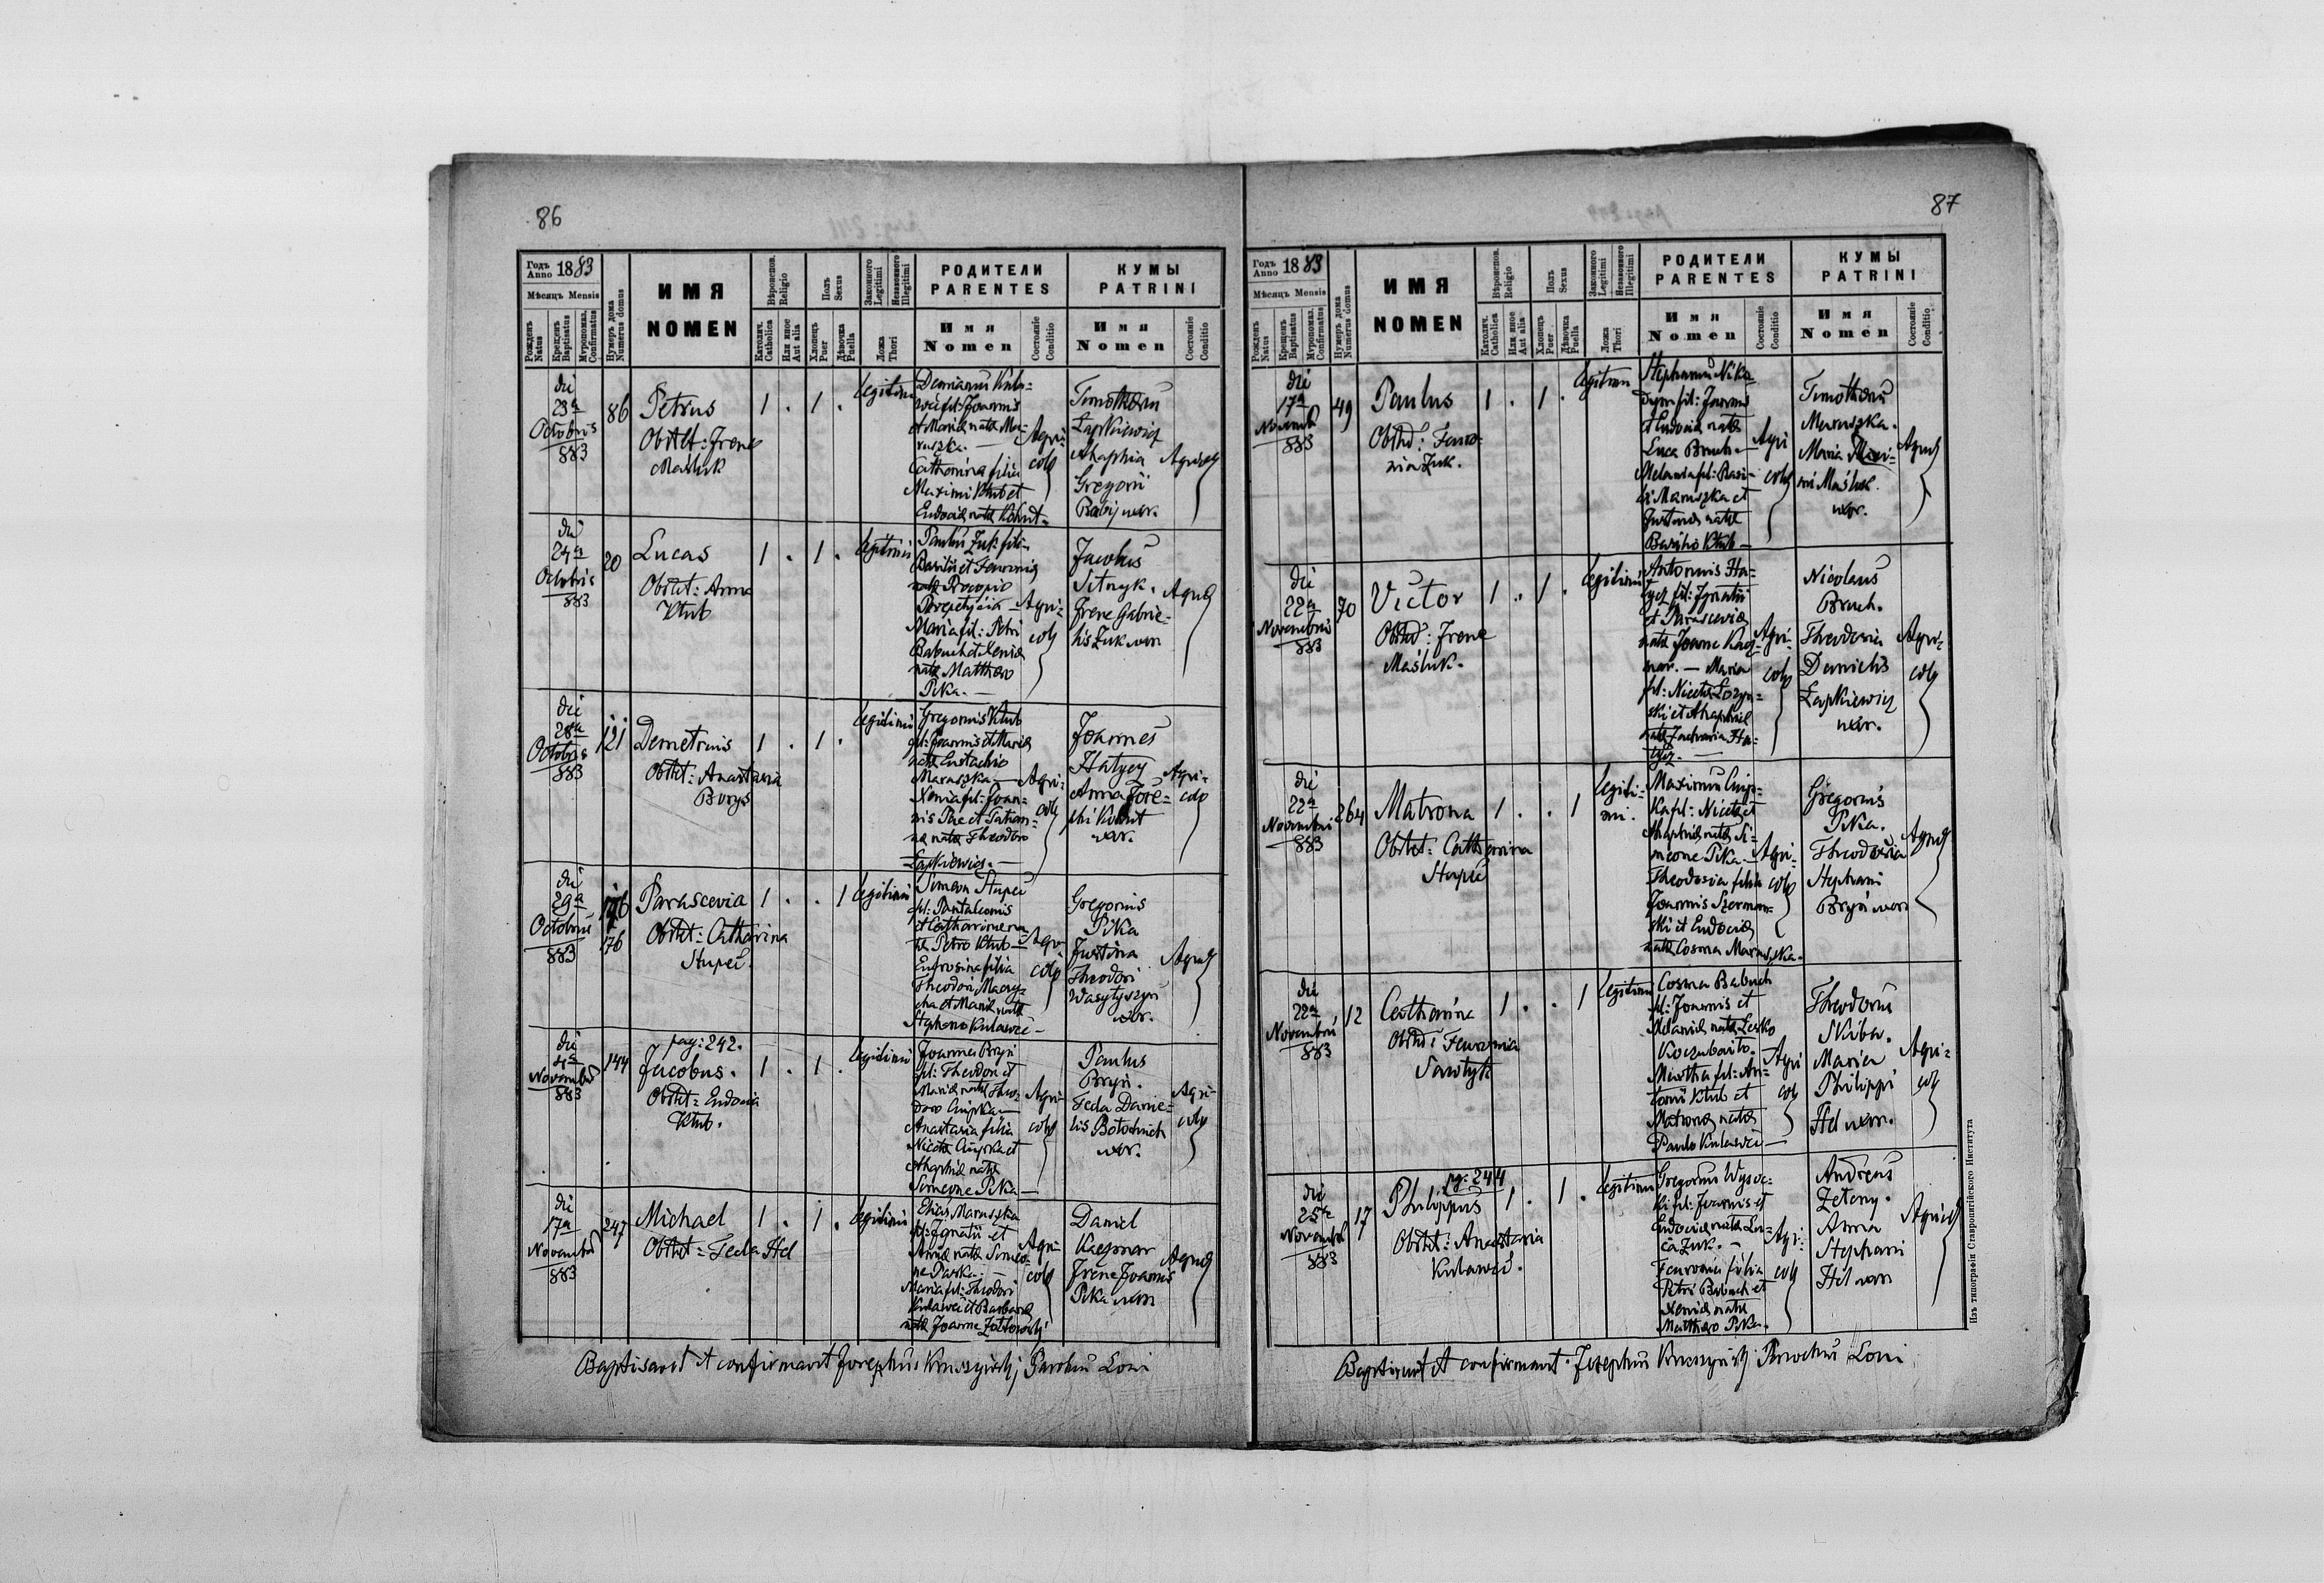 86
Годъ Anno 1883
Мѣсяцъ Mensis
Рожденъ Natus
Крещенъ Baptisatus
Мѵропомаз. Confirmatus
Нумеръ дома Numerus domus
ИМЯ
NOMEN
Вѣроиспов. Religio
Католич. Catholica
Или иное Aut alia
Полъ Sexus
Хлопецъ Puer
Дѣвочка Puella
Законного Legitimi
Незаконного Illegitimi
Ложа Thori
РОДИТЕЛИ
PARENTES
Имя
Nomen
Состояніе Conditio
КУМЫ
PATRINI
Имя
Nomen
Состояніе Conditio
die
23a
Octobris
883
86
Petrus
Obstet: Irene
Masluk
1 . 1 .
legitimi
Damianus Kula-
weć fil: Joannis
et Mariae natae Ma-
ruszka. —
Catharina filia
Maximi Kłub et
Eudociae natae Kohut
Agri-
colae
Timotheus
Łapkiewicz
Ahaphia
Gregorii
Babij uxor
Agricolae
die
24a
Octobris
883
20
Lucas
Obstet: Anna
Kłub
1 . 1 .
legitimi
Paulus Żuk fili-
Basilii et Fevroniae
natae Procopio
Maria fil: Petri
Babuch et Xeniae
natae Matthaeo
Pika. —
Agri-
colae
Jacobus
Sitnyk.
Irene Gabrie-
lis Żuk uxor
Agricolae
die
28a
Octobris
883
121
Demetrius
Obstet: Anastasia
Borys
1 . 1 .
legitimi
Gregorius Kłub
fil: Joannis et Mariae
natae Eustachio
Maruszka —
Xenia fil: Joan-
nis et Tatian-
nae natae Theodoro
Łapkiewicz. —
Agri-
colae
Joannes
Hatycz
Anna Jose-
phi Kohut
uxor.
Agri-
colae
die
29a
Octobris
883
176
176
Parascevia
Obstet: Catharina
Stupeć.
1 . . 1
legitimi
Simeon Stupeć
fil: Pantaleonis
et Catharinae na-
tae Petro Kłub —
Eufrosina filia
Theodori
et Mariae natae
Stephano Kulaweć —
Agri-
colae
Gregorius
Pika
Justina
Theodori
Wasyłyszyn
uxor.
Agricolae
die
4a
Novembris
883
144
pag: 242.
Jacobus.
Obstet: Eudocia
Kłub.
1 . 1 .
legitimi
Joannes Bryń
fil: Theodori et
Mariae natae Theo-
doro Cupka —
Anastasia filia
Nicetae Cupka et
Ahaphiae natae
Simeone Pika —
Agri-
colae
Paulus
Bryń.
Tecla Danie-
lis
uxor.
Agri-
colae
die
17a
Novembris
883
247
Michael
Obstet: Tecla Hel
1 . 1 .
legitimi
Elias Maruszka
fil: Ignatii et
Annae natae Simeo-
ne Paska. —
Maria fil: Theodori
Kulaweć et Barbarae
natae Joanne Żółtowski
Agri-
colae
Daniel
Kaczmar
Irene Joannis
Pika uxor
Agricolae
Baptisavit et confirmavit Josephus Kruszyński, Parochus Loni
87
Годъ Anno 1883
Мѣсяцъ Mensis
Рожденъ Natus
Крещенъ Baptisatus
Мѵропомаз. Confirmatus
Нумеръ дома Numerus domus
ИМЯ
NOMEN
Вѣроиспов. Religio
Католич. Catholica
Или иное Aut alia
Полъ Sexus
Хлопецъ Puer
Дѣвочка Puella
Законного Legitimi
Незаконного Illegitimi
Ложа Thori
РОДИТЕЛИ
PARENTES
Имя
Nomen
Состояніе Conditio
КУМЫ
PATRINI
Имя
Nomen
Состояніе Conditio
die
17a
Novemb
883
49
Paulus
Obstet: Fewro-
nia Żuk.
1 . 1 .
legitimi
Stephanus Nika-
dym fil: Joannis
et Eudociae natae
Luca Bruch. —
Melania fil: Basi-
lii Maruszka et
Justinae natae
Basilio Kłub —
Agri
colae
Timotheus
Maruszka.
Maria Maxi-
mi Maśluk.
uxor.
Agricolae
die
22a
Novembris
883
70
Victor
Obstet: Irene
Maśluk.
1 . 1 .
legitimi
Antonius Ha-
tycz fil: Ignatii
et Parasceviae
natae Joanne Kacz-
mar. — Maria
fil: Nicetae Łozyn-
ski et Ahaphiae
natae Zacharia Ha-
tycz. —
Agri-
colae
Nicolaus
Bruch.
Theodosia
Danielis
Łapkiewicz
uxor.
Agri-
colae
die
22a
Novembris
883
264
Matrona
Obstet: Catharina
Stupeć
1 . . 1
legiti-
mi.
Maximus Cup-
ka fil: Nicetae et
Ahaphiae natae Si-
meone Pika —
Theodosia filia
Joannis Szerman-
ski et Eudociae
natae Cosma Maruszka.
Agri-
colae
Gregorius
Pika.
Theodosia
Stephani
Bryń uxor
Agricolae
die
22a
Novembris
883
12
Catharina
Obstet: Fewronia
Pawłyk
1 . . 1
legitimi
Cosma Babuch
fil: Joannis et
Melaniae natae Lesko
Martha fil: An-
tonii Kłub et
Matronae natae
Paulo Kulaweć —
Agri
colae
Theodorus
Skiba.
Maria
Philippi
Hel uxor.
Agri-
colae
die
25a
Novembris
883
17
pag: 244
Philippus
Obstet: Anastasia
Kulaweć.
1 . 1 .
legitimi
Gregorius Wysoc-
ki fil: Joannis et
Eudociae natae Lu-
ca Żuk. —
Fewronia filia
Petri Babuch et
Xeniae natae
Matthaeo Pika.
Agri-
colae
Andreas
Zełeny.
Anna
Stephani
Hel uxor
Agricolae
Baptisavit et confirmavit Josephus Kruszyński Parochus Loni
Изъ типографіи Ставропигійского Института